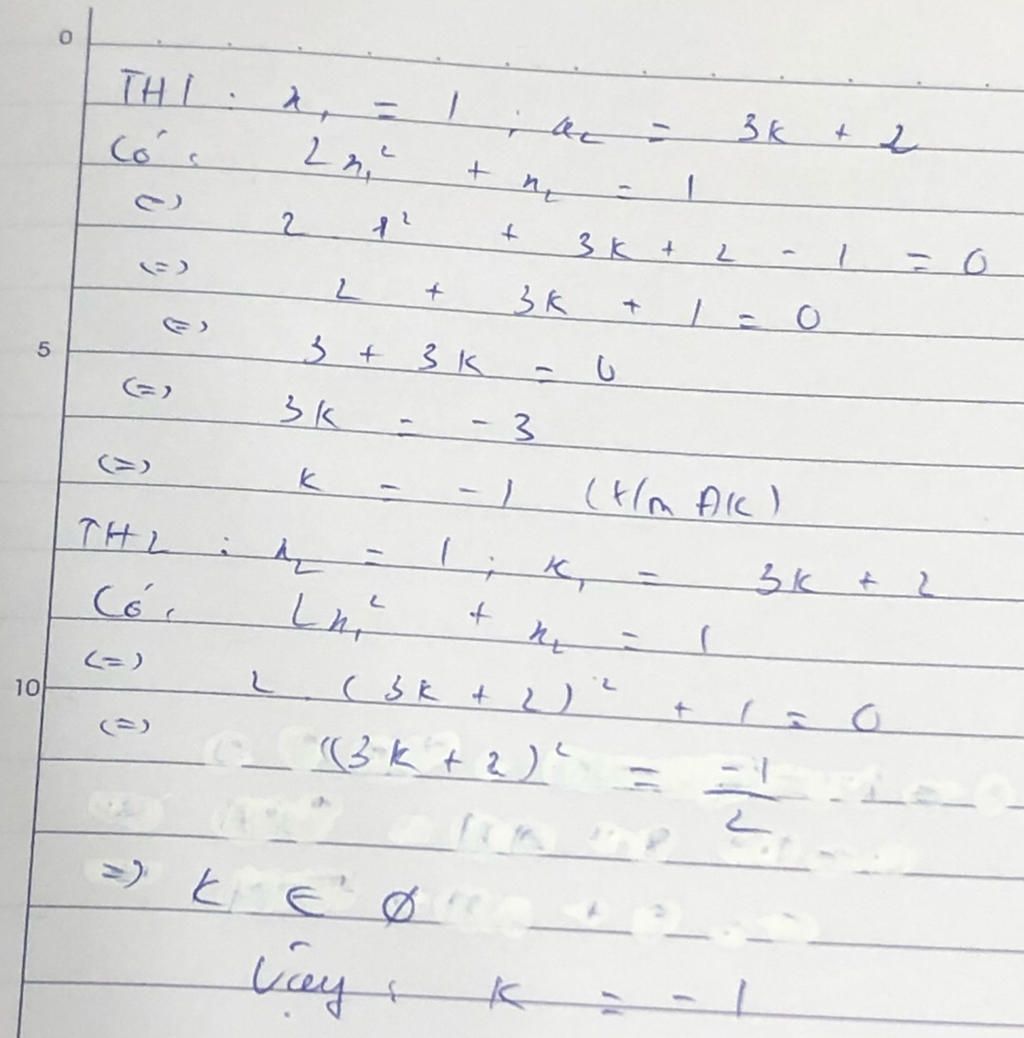 0
TH1 : x₁ = 1 ; x₂ = 3k + 2
Có : 2x₁² + x₂ = 1
(=) 2 1² + 3k + 2 - 1 = 0
(=) 2 + 3k + 1 = 0
5 (=) 3 + 3k = 0
(=) 3k = -3
(=) k = -1 (t/m ĐK)
TH2 : x₂ = 1 ; x₁ = 3k + 2
Có : 2x₁² + x₂ = 1
10 (=) 2 . (3k + 2)² + 1 = 0
(=) (3k + 2)² = -1/2
=) k ∈ ∅
Vậy : k = -1